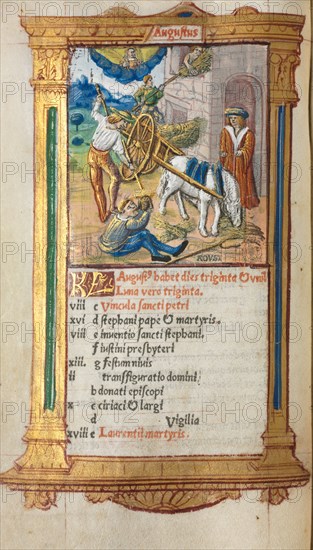 Augustus
AOVST
KL Augustꝰ habet dies triginta & unū
Luna vero triginta.
viii c Vincula sancti petri
xvi d stephani pape & martyris.
viii e inventio sancti stephani.
f iustini presbyteri
xiii. g festum nivis
ii transfiguratio domini
b donati episcopi
x c ciriaci & largi
d Vigilia
xviii e Laurentii martyris.